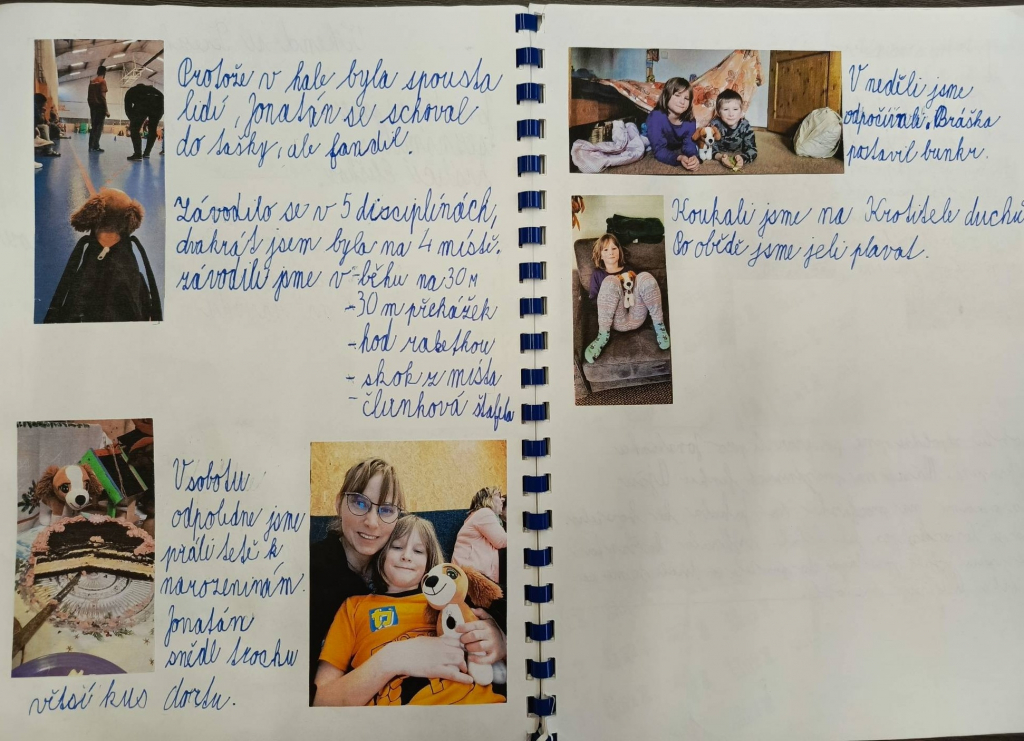 Protože v hale byla spousta
lidí, Jonatán se schoval
do tašky, ale fandil.
Závodilo se v 5 disciplínách,
dvakrát jsem byla na 4 místě.
závodili jsme v -běhu na 30 m
-30 m překážek
-hod raketkou
- skok z místa
- člunková štafeta
V sobotu
odpoledne jsme
přáli tetě k
narozeninám.
Jonatán
snědl trochu
větší kus dortu.
V neděli jsme
odpočívali. Braška
postavil bunkr.
Koukali jsme na Krotitele duchů
Po obědě jsme jeli plavat.